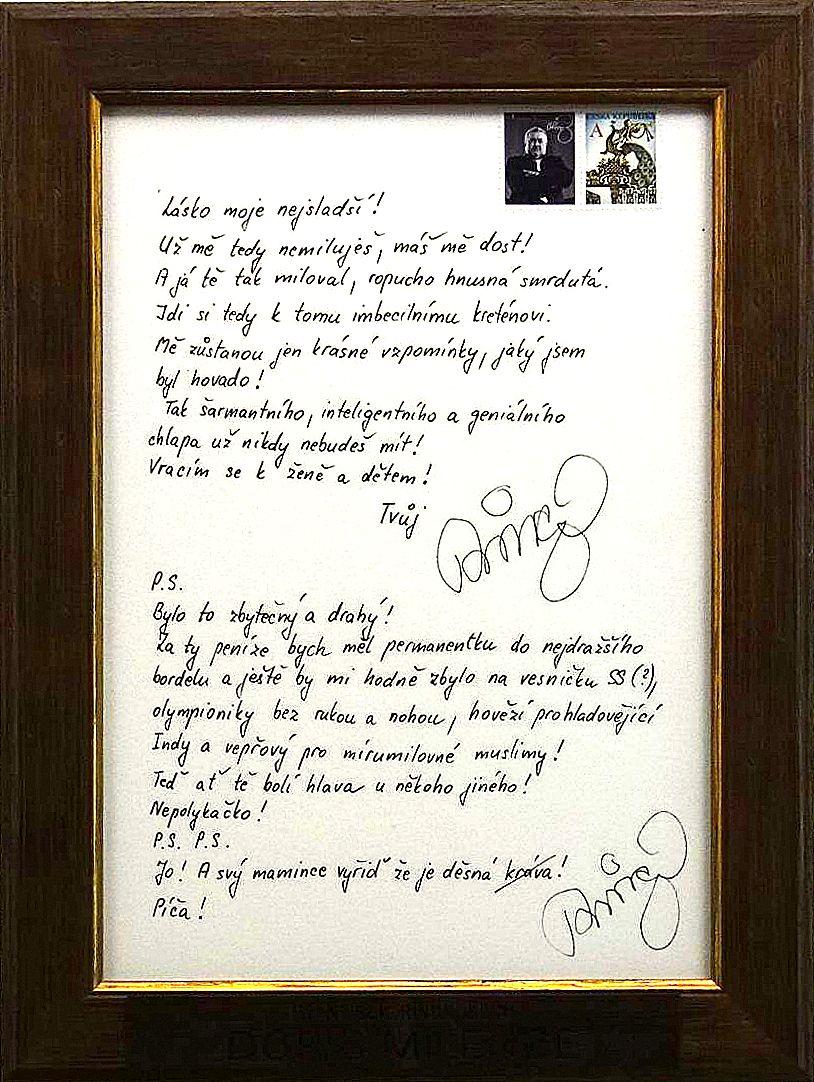 ČESKÁ REPUBLIKA
A
Lásko moje nejsladší!
Už mě tedy nemiluješ, máš mě dost!
A já tě tak miloval, ropucho hnusná smrdutá.
Idi si tedy k tomu imbecilnímu kreténovi.
Mě zůstanou jen krásné vzpomínky, jaký jsem
byl hovado!
Tak šarmantního, inteligentního a geniálního
chlapa už nikdy nebudeš mít!
Vracím se k ženě a dětem!
Tvůj
P.S.
Bylo to zbytečný a drahý!
Za ty peníze bych měl permanentku do nejdražšího
bordelu a ještě by mi hodně zbylo na vesničku SS (?),
olympioniky bez rukou a nohou, hovězí pro hladovějící
Indy a vepřový pro mírumilovné muslimy!
Teď ať tě bolí hlava u někoho jiného!
Nepolykačko!
P.S. P.S.
Jo! A svý mamince vyřiď že je děsná kráva!
Píča!